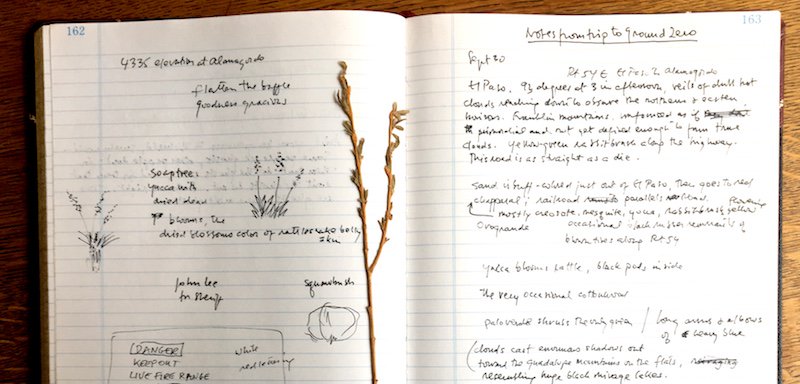 162
4335 elevation at Alamogordo
flatten the baffle
goodness gracious
soaptree
yucca with
dried dead
blooms, the
dried blossoms color of rattlesnake belly
skin
john lee
for sheriff
squawbush
DANGER
KEEP OUT
LIVE FIRE RANGE
white
red lettering
163
Notes from trip to Ground Zero
Sept 30
Rt 54 E El Paso to Alamogordo
El Paso, 93 degrees at 3 in afternoon, veils of dull hot
clouds reaching down to obscure the northern & eastern
horizon. Franklin mountains, unformed as if
primordial and not yet defined enough to form true
clouds. Yellow green rabbitbrush along the highway.
This road is as straight as a die.
Sand is buff-colored just out of El Paso, then goes to red
chapparal, railroad parallels
mostly creosote, mesquite, yucca, rabbitbrush flowering yellow
Orogrande occasional black rubber remnants of
blown tires along Rt 54
yucca blooms rattle, black pods inside
the very occasional cottonwood
paloverde shrubs the only green / long arms & elbows
of heavy blue
(clouds cast enormous shadows out
toward the Guadalupe Mountains on the flats,
resembling huge black mirage lakes.